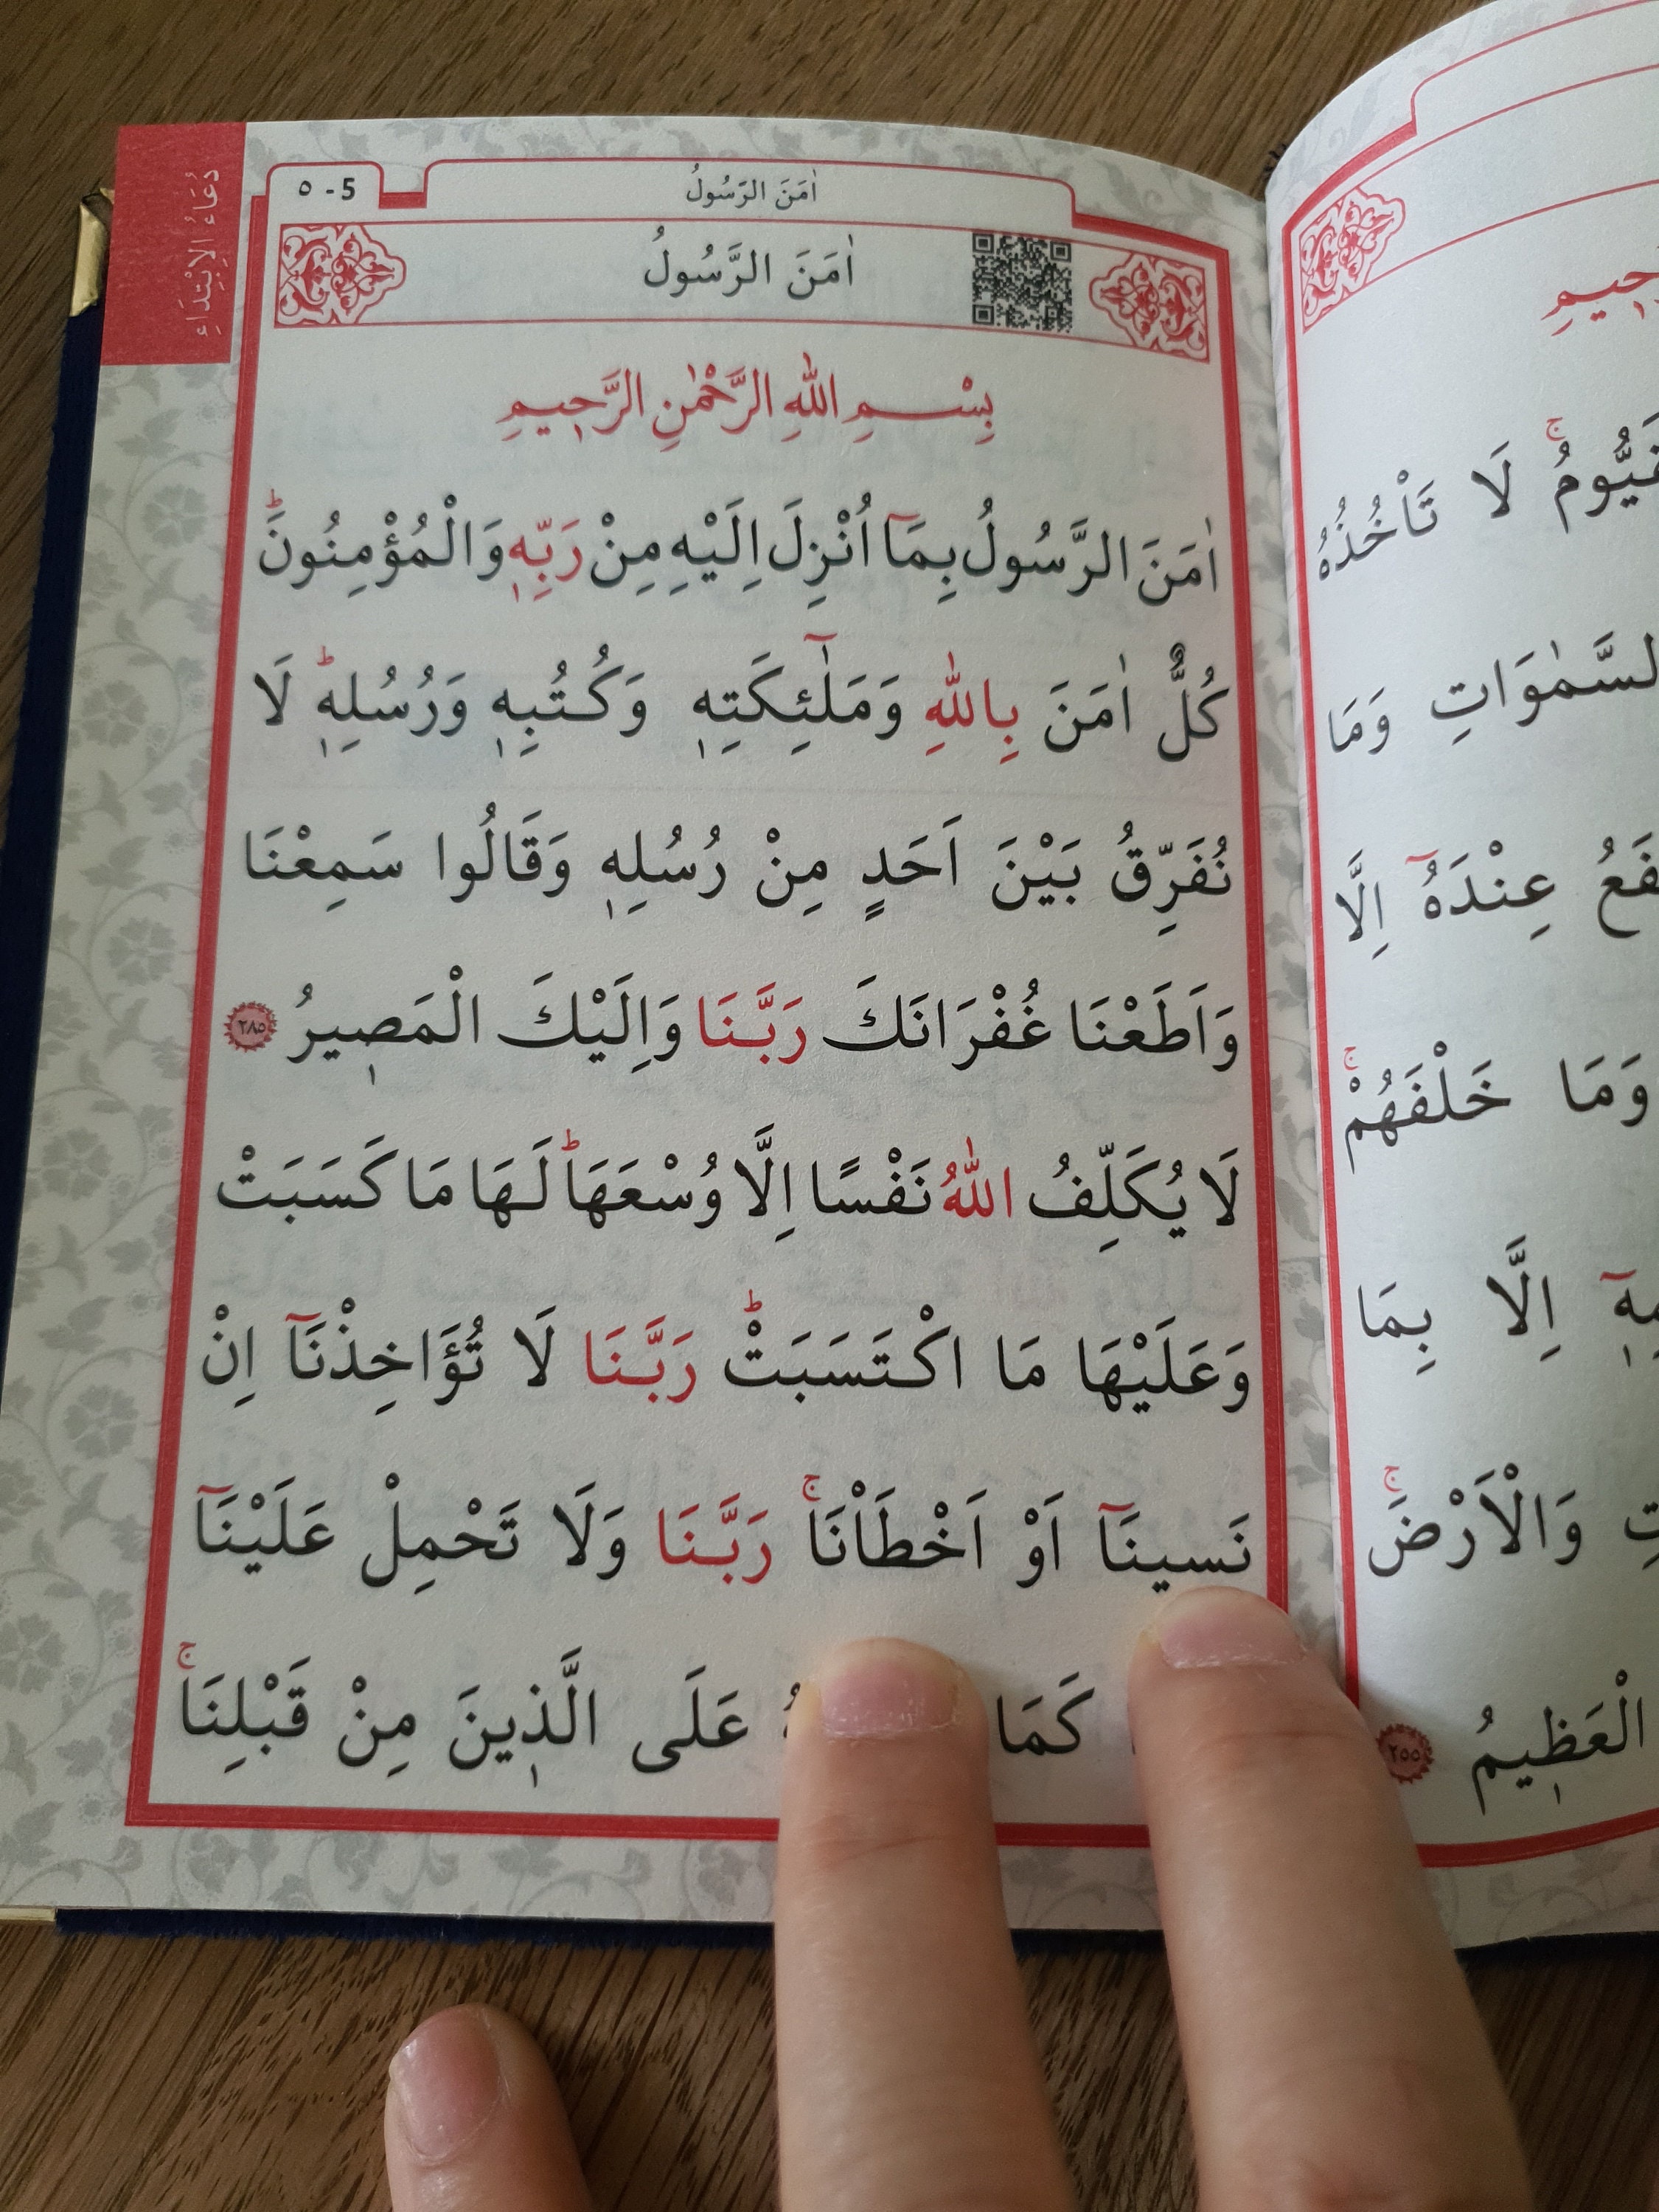 دُعَاءُ الْاِبْتِدَاءِ
٥ - 5
اٰمَنَ الرَّسُولُ
اٰمَنَ الرَّسُولُ
بِسْمِ اللّٰهِ الرَّحْمٰنِ الرَّح۪يمِ
اٰمَنَ الرَّسُولُ بِمَٓا اُنْزِلَ اِلَيْهِ مِنْ رَبِّه۪ وَالْمُؤْمِنُونَۜ
كُلٌّ اٰمَنَ بِاللّٰهِ وَمَلٰٓئِكَتِه۪ وَكُتُبِه۪ وَرُسُلِه۪ۜ لَا
نُفَرِّقُ بَيْنَ اَحَدٍ مِنْ رُسُلِه۪ وَقَالُوا سَمِعْنَا
وَاَطَعْنَا غُفْرَانَكَ رَبَّنَا وَاِلَيْكَ الْمَص۪يرُ ٢٨٥
لَا يُكَلِّفُ اللّٰهُ نَفْسًا اِلَّا وُسْعَهَاۜ لَهَا مَا كَسَبَتْ
وَعَلَيْهَا مَا اكْتَسَبَتْۜ رَبَّنَا لَا تُؤَاخِذْنَٓا اِنْ
نَسينَٓا اَوْ اَخْطَاْنَاۚ رَبَّنَا وَلَا تَحْمِلْ عَلَيْنَٓا
كَمَا عَلَى الَّذ۪ينَ مِنْ قَبْلِنَاۚ
لَا تَاْخُذُهُ
وَمَا
عِنْدَهُٓ اِلَّا
وَمَا خَلْفَهُمْۚ
اِلَّا بِمَا
وَالْاَرْضَۚ
الْعَظ۪يمُ ٢٥٥